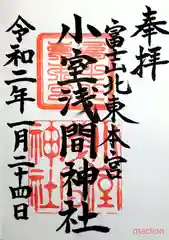 奉拝
冨士北東本宮
小室浅間神社
令和二年一月二十四日
maclion